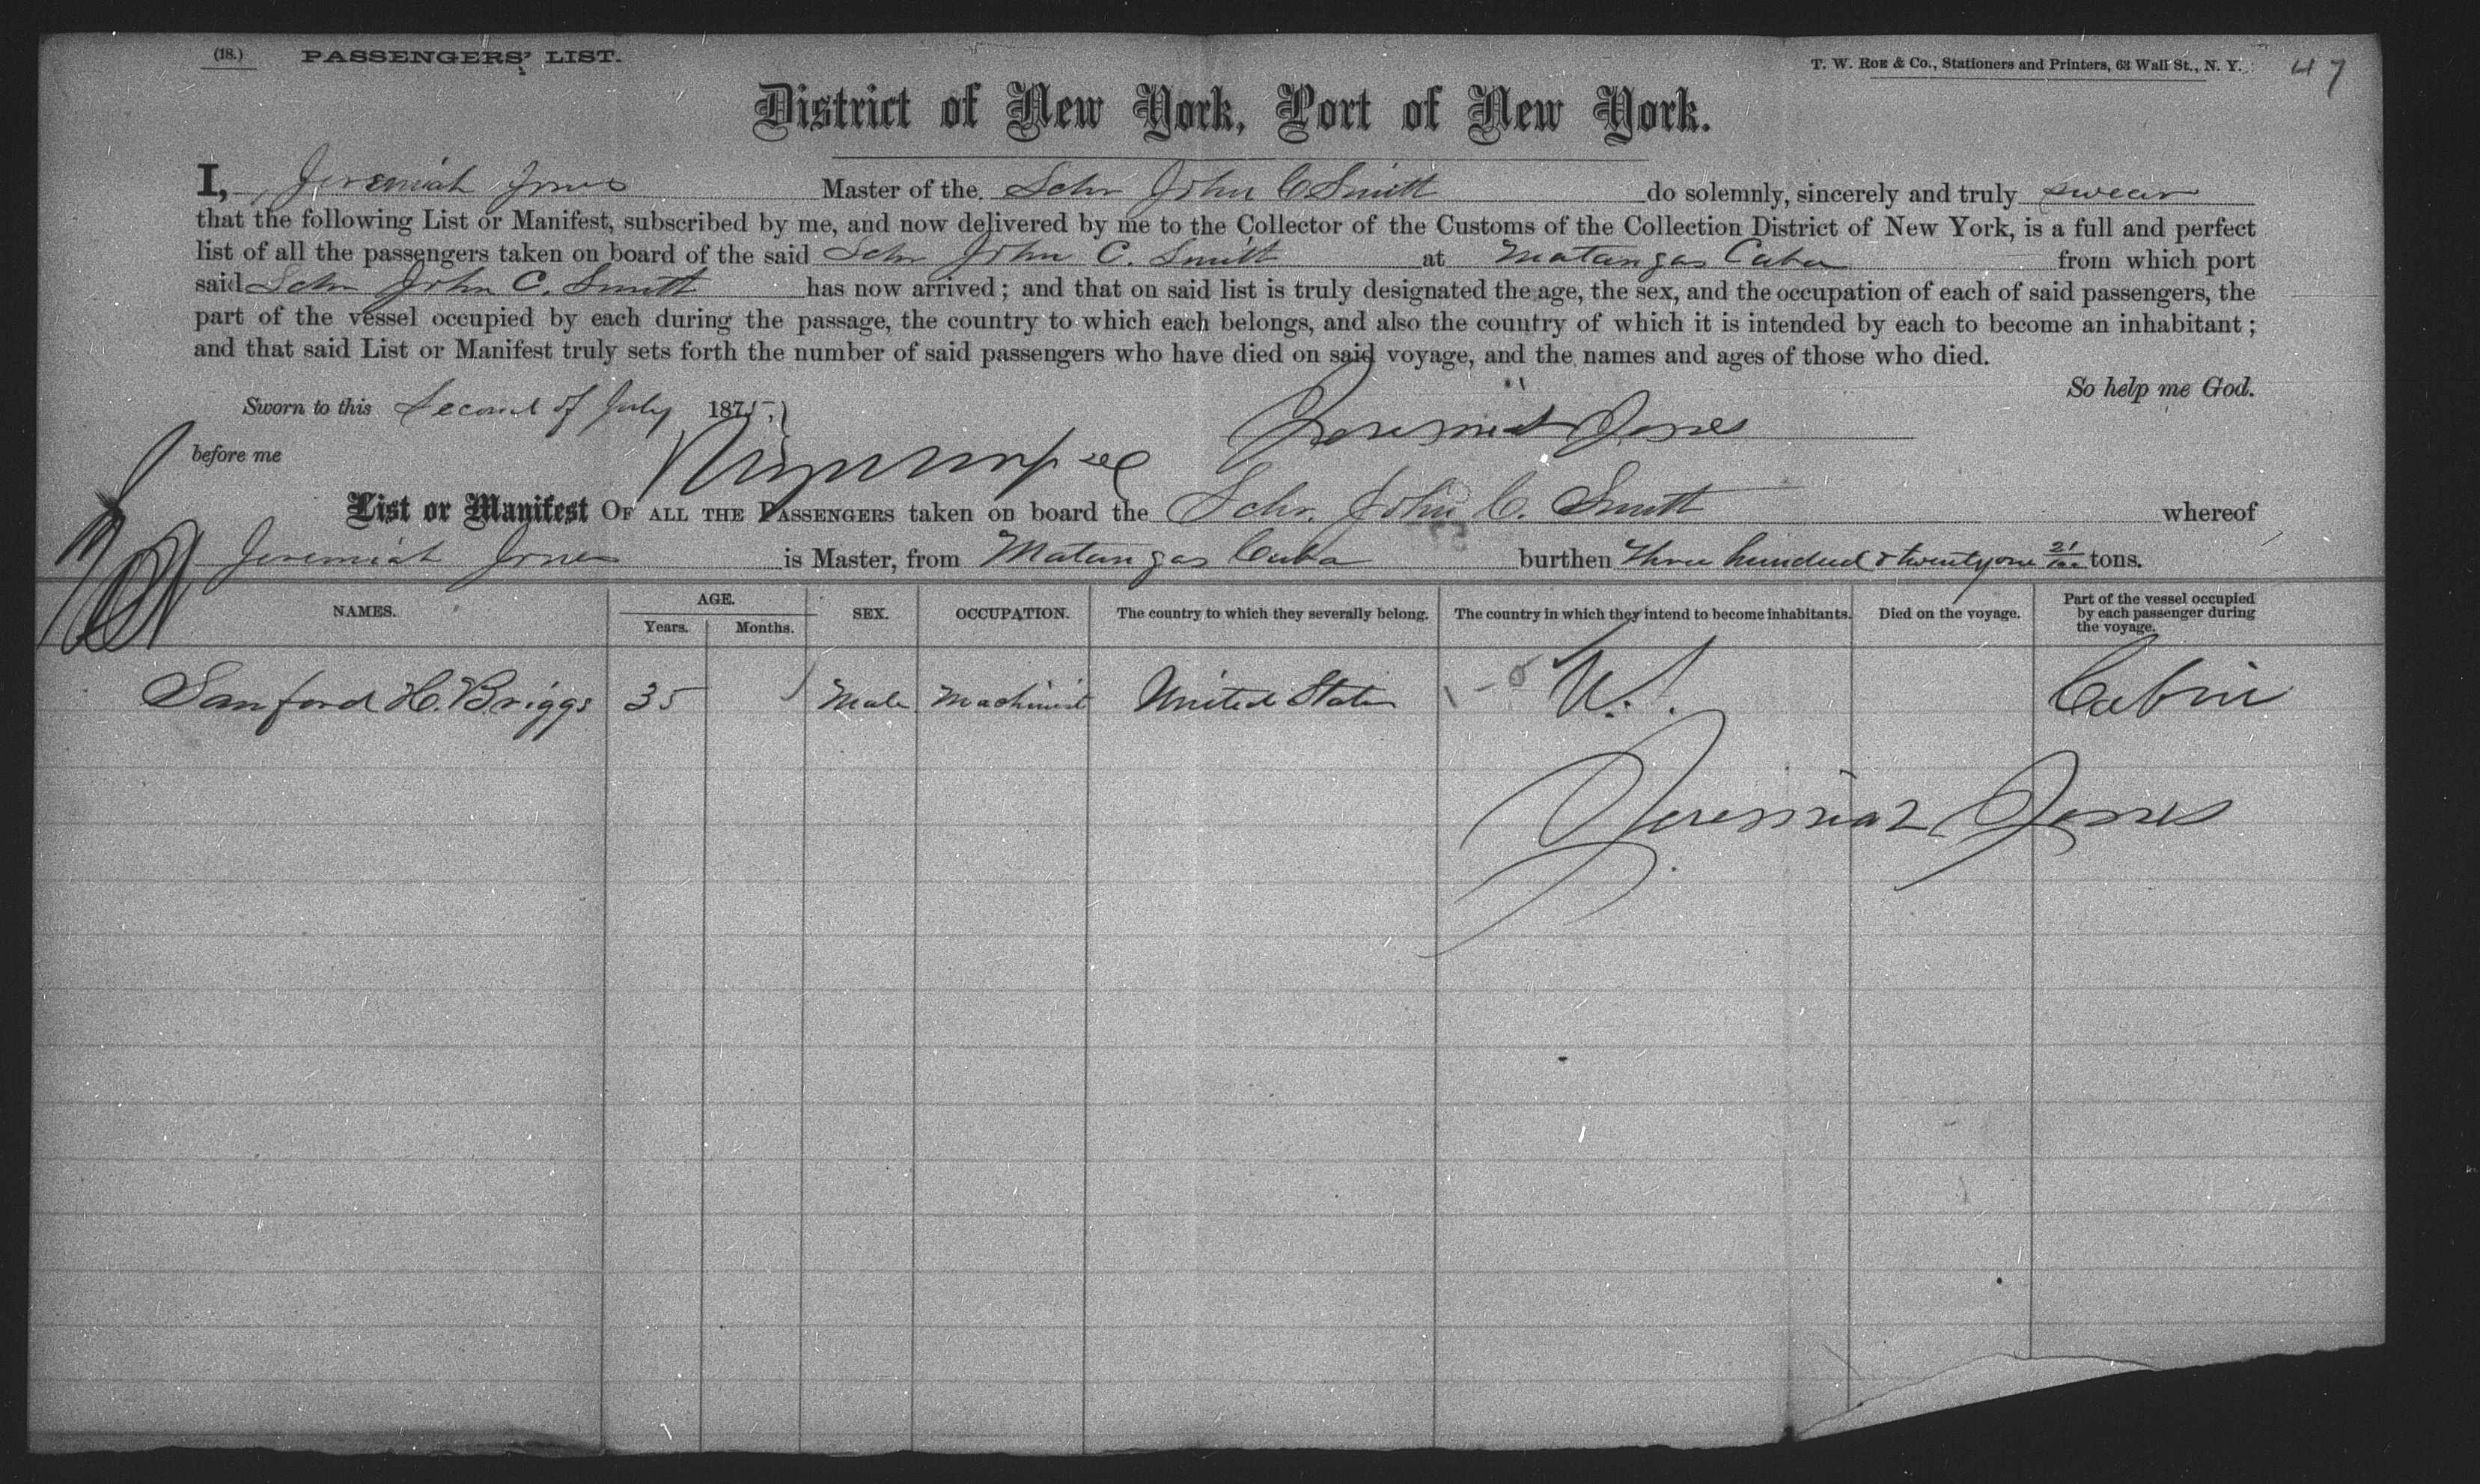 (18.) PASSENGERS' LIST. T. W. ROE & Co., Stationers and Printers, 63 Wall St., N. Y. 47
District of New York, Port of New York.
I, Jeremiah Jones Master of the Schr John C Smith do solemnly, sincerely and truly swear
that the following List or Manifest, subscribed by me, and now delivered by me to the Collector of the Customs of the Collection District of New York, is a full and perfect
list of all the passengers taken on board of the said Schr John C. Smith at Matangas Cuba from which port
said Schr John C. Smith has now arrived; and that on said list is truly designated the age, the sex, and the occupation of each of said passengers, the
part of the vessel occupied by each during the passage, the country to which each belongs, and also the country of which it is intended by each to become an inhabitant;
and that said List or Manifest truly sets forth the number of said passengers who have died on said voyage, and the names and ages of those who died.
So help me God.
Sworn to this Second of July 1875
Jeremiah Jones
before me
List or Manifest OF ALL THE PASSENGERS taken on board the Schr. John C. Smith whereof
Jeremiah Jones is Master, from Matangas Cuba burthen Three hundred & twenty one 21/100 tons.
NAMES. AGE. Years. Months. SEX. OCCUPATION. The country to which they severally belong. The country in which they intend to become inhabitants. Died on the voyage. Part of the vessel occupied by each passenger during the voyage.
Sanford H. Briggs 35 Male Machinist United States Cabin
Jeremiah Jones